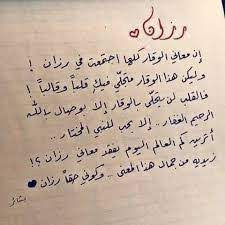 رزان
إن معاني الوقار كلها اجتمعت في رزان !
وليكن هذا الوقار متجلّي فيك قلباً وقالباً !
فالقلب لن يتحلّى بالوقار إلا بوصال بالله
الرحيم الغفار .. إلا بحب للنبي المختار ..
أترين كم العالم اليوم يفقد معاني رزان ؟!
زيديه من جمال هذا المعنى .. وكوني حقاً رزان
بشائر